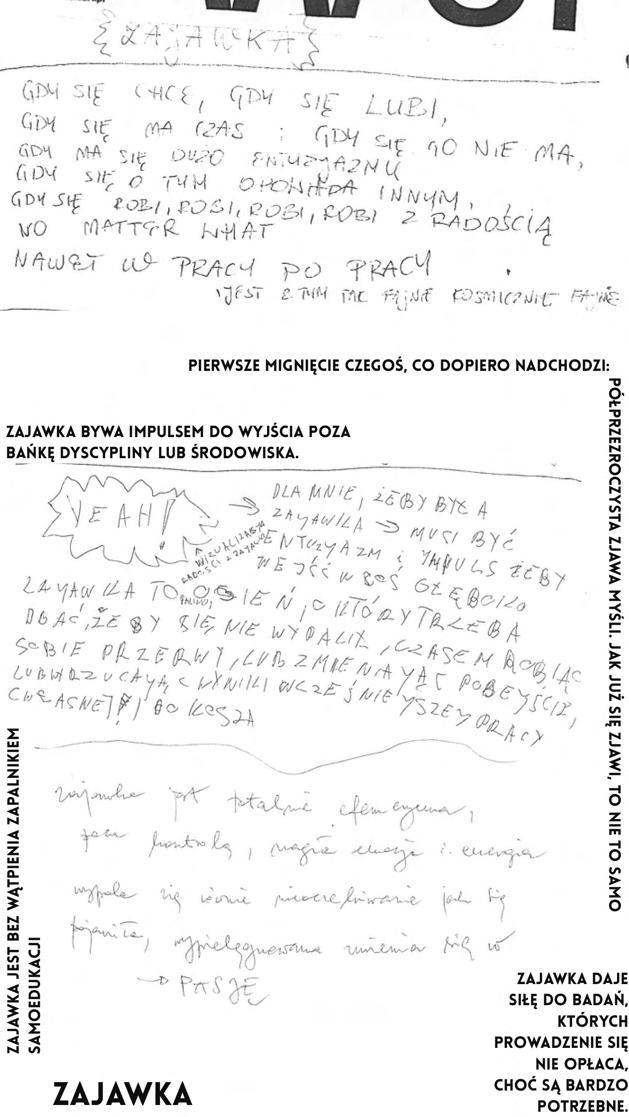 {ZAJAWKA}
GDY SIĘ CHCE, GDY SIĘ LUBI,
GDY SIĘ MA CZAS I GDY SIĘ GO NIE MA,
GDY MA SIĘ DUŻO ENTUZJAZMU
GDY SIĘ O TYM OPOWIADA INNYM,
GDY SIĘ ROBI, ROBI, ROBI, ROBI Z RADOŚCIĄ
NO MATTER WHAT
NAWET W PRACY PO PRACY
JEST Z TYM TAK FAJNIE KOSMICZNIE FAJNIE
PIERWSZE MIGNIĘCIE CZEGOŚ, CO DOPIERO NADCHODZI:
PÓŁPRZEZROCZYSTA ZJAWA MYŚLI. JAK JUŻ SIĘ ZJAWI, TO NIE TO SAMO
ZAJAWKA BYWA IMPULSEM DO WYJŚCIA POZA
BAŃKĘ DYSCYPLINY LUB ŚRODOWISKA.
YEAH!
WIZUALIZACJA
RADOŚCI Z ZAJAWKI
→ DLA MNIE, ŻEBY BYŁA
ZAJAWKA → MUSI BYĆ
ENTUZJAZM i IMPULS ŻEBY
WEJŚĆ W COŚ GŁĘBOKO
ZAJAWKA TO OGIEŃ, O KTÓRY TRZEBA
DBAĆ, ŻEBY SIĘ NIE WYPALIŁ, CZASEM ROBIĄC
SOBIE PRZERWY, LUB ZMIENIAJĄC PODEJŚCIE,
LUB WRZUCAJĄC WYNIKI WCZEŚNIEJSZEJ PRACY
(WŁASNEJ) DO KOSZA
zajawka jest totalnie efemeryczna,
poza kontrolą, nagła emocja i energia
wypala się równie nieoczekiwanie jak się
pojawiła, wypielęgnowana zmienia się w
→ PASJĘ
ZAJAWKA JEST BEZ WĄTPIENIA ZAPALNIKIEM
SAMOEDUKACJI
ZAJAWKA DAJE
SIŁĘ DO BADAŃ,
KTÓRYCH
PROWADZENIE SIĘ
NIE OPŁACA,
CHOĆ SĄ BARDZO
POTRZEBNE.
ZAJAWKA